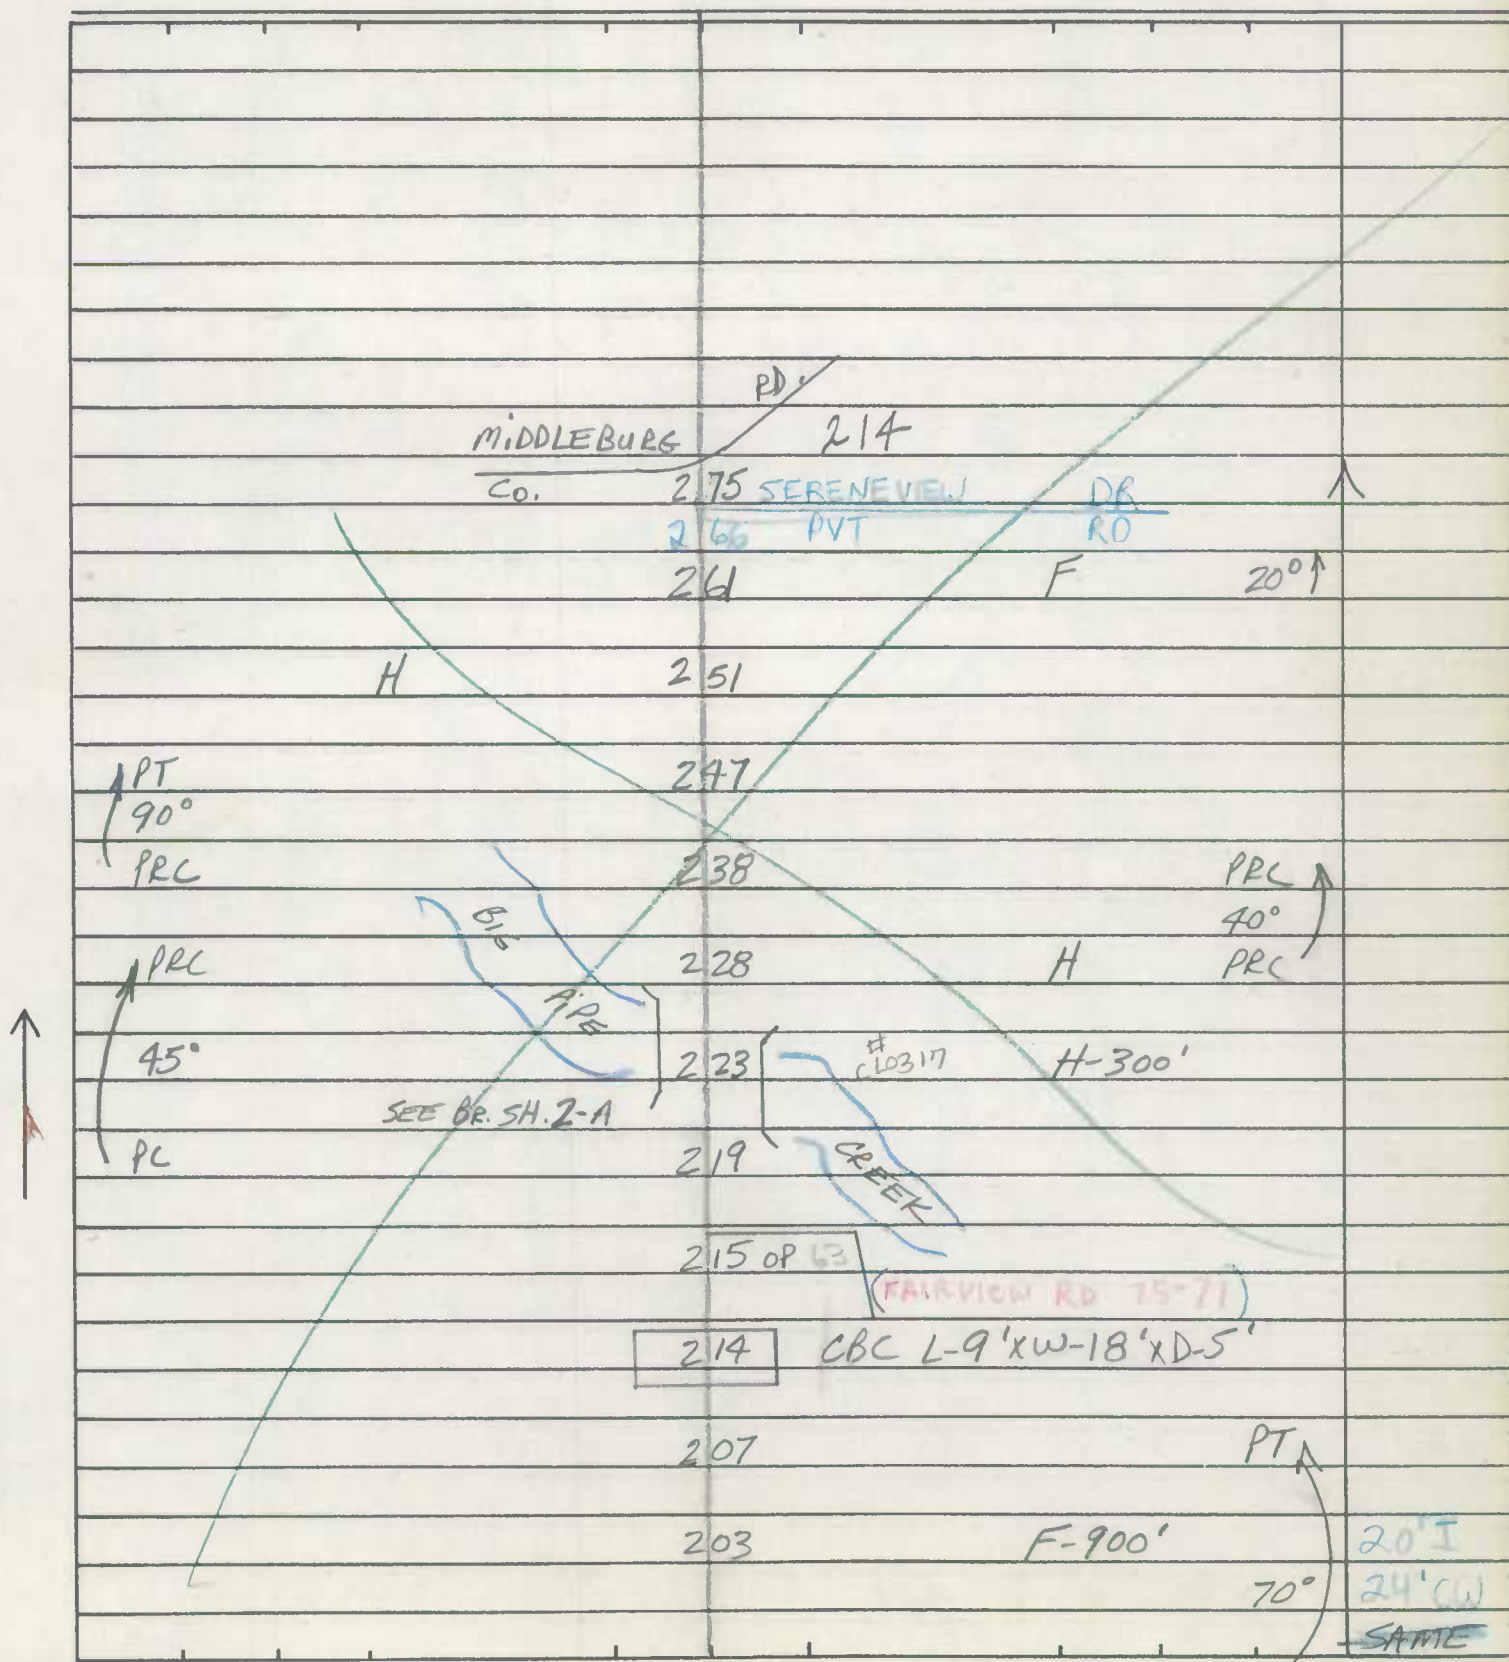 RD.
MIDDLEBURG 214
CO. 275 SERENEVIEW DR
266 PVT RD
261 F 20°
H 251
PT 247
90°
PRC 238 PRC
BIG 40°
PRC 228 H PRC
PIPE
45° 223 # CL0317 H-300'
SEE BR. SH. 2-A
PC 219 CREEK
215 OP 63
(FAIRVIEW RD 75-71)
214 CBC L-9'XW-18'XD-5'
207 PT
203 F-900' 20' I
70° 24' CW
SAME